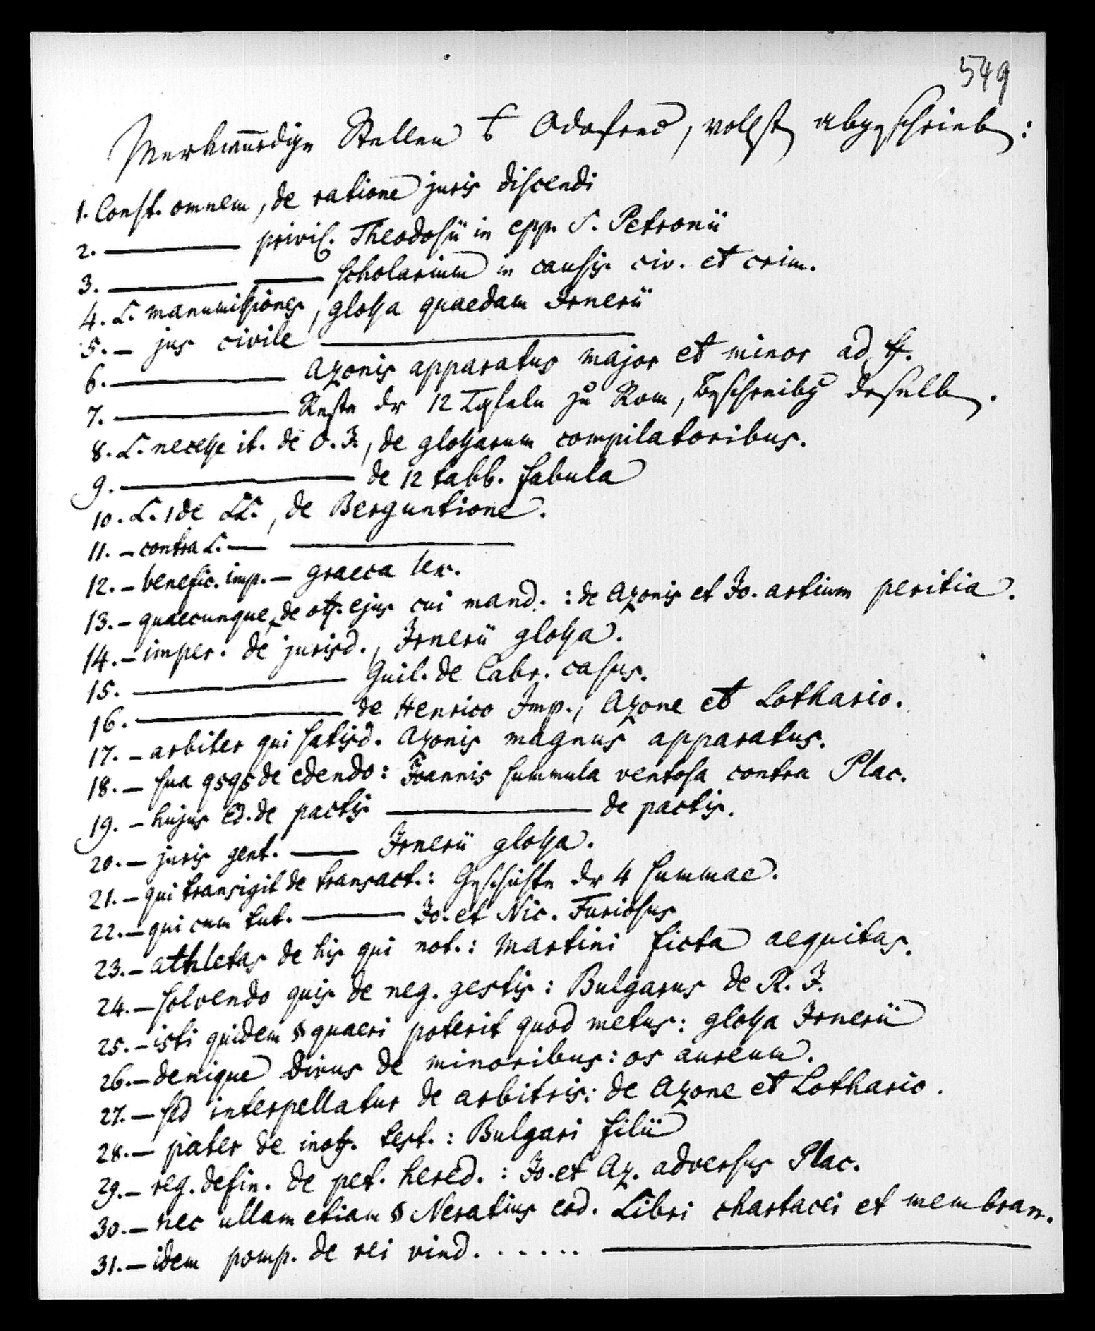 549
Merkwürdige Stellen Odofred, vollst abgeschrieb:
1. Const. omnem, de ratione juris discendi
2. ——— privil. Theodosii in epp. S. Petronii
3. ——— —— scholarium in causis civ. et crim.
4. L. manumissiones, glossa quaedam Irnerii
5. — jus civile ———
6. ——— Azonis apparatus major et minor ad ff.
7. ——— Reste der 12 Tafeln zu Rom, Beschreibg derselb.
8. L. necesse it. de O. J., de glossarum compilatoribus.
9. ——— de 12 tabb. fabula
10. L. 1 de LL., de Berguntione.
11. — contra L. — ———
12. — benefic. imp. — graeca lex.
13. — quaecunque, de off. ejus cui mand. : de Azonis et Jo. artium peritia.
14. — imper. de jurisd., Irnerii glossa.
15. ——— Guil. de Cabr. casus.
16. ——— de Henrico Imp., Azone et Lothario.
17. — arbiter qui satisd. Azonis magnus apparatus.
18. — sua qsqs de edendo: Joannis summula ventosa contra Plac.
19. — hujus Ed. de pactis ——— de pactis.
20. — juris gent. —— Irnerii glossa.
21. — qui transigit de transact.: Geschichte der 4 summae.
22. — qui cum tut. ——— Jo. et Nic. Furiosus
23. — athletas de his qui not.: Martini ficta aequitas.
24. — solvendo quis de neg. gestis: Bulgarus de R. J.
25. — isti quidem § quaeri poterit quod metus: glossa Irnerii
26. — denique Divus de minoribus: os aureum.
27. — sed interpellatur de arbitris: de Azone et Lothario.
28. — pater de inoff. test.: Bulgari filii
29. — reg. defin. de pet. hered. : Jo. et Az. adversus Plac.
30. — nec ullam etiam § Neratius eod. Libri chartacei et membran.
31. — idem pomp. de rei vind. . . . . . . ———